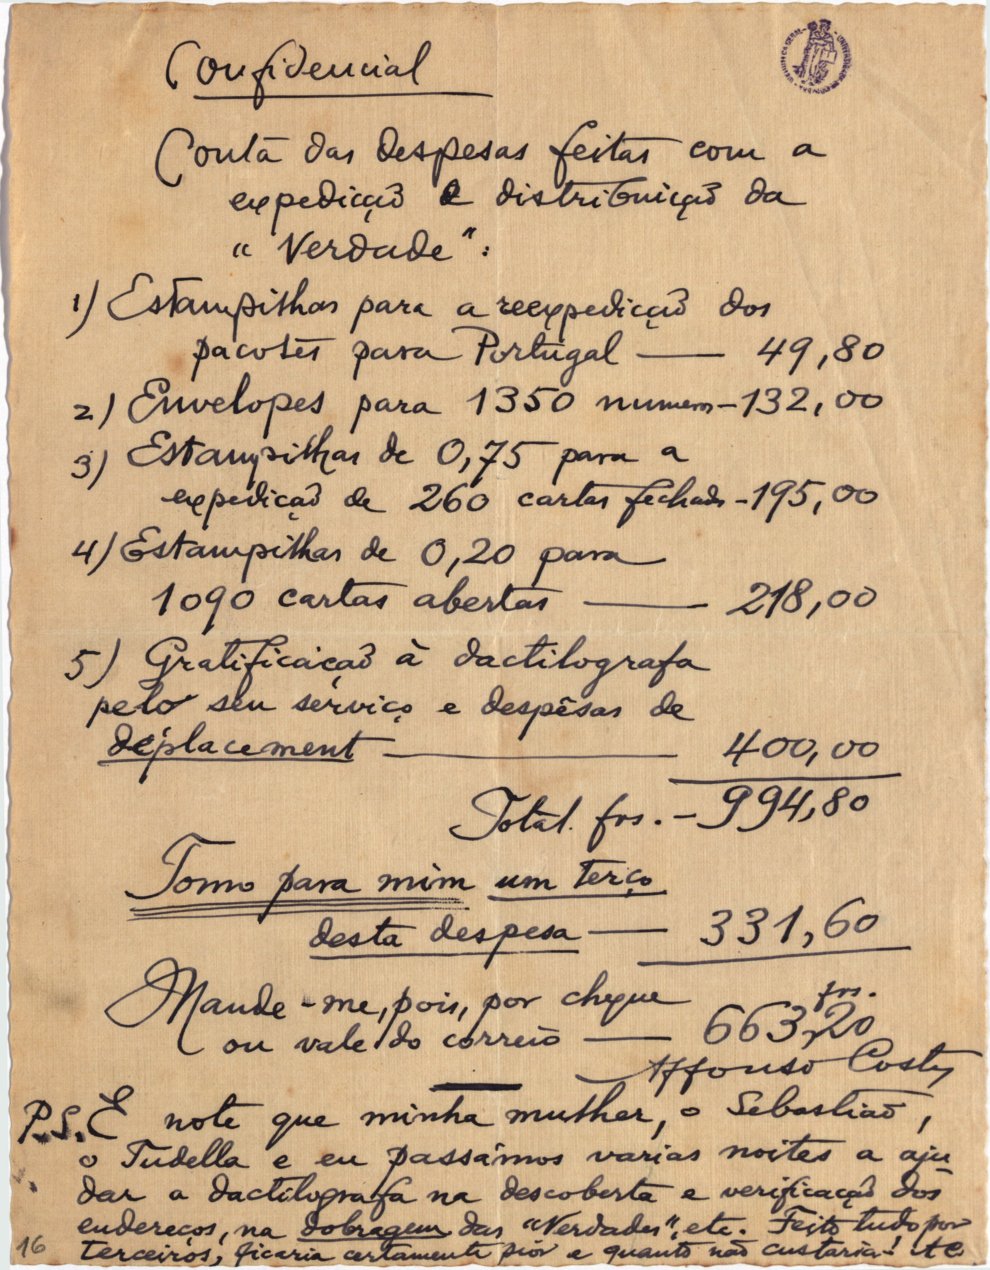 Confidencial
Conta das despesas feitas com a
expedição e distribuição da
"Verdade":
1) Estampilhas para a reexpedição dos
pacotes para Portugal — 49,80
2) Envelopes para 1350 numeros - 132,00
3) Estampilhas de 0,75 para a
expedição de 260 cartas fechadas - 195,00
4) Estampilhas de 0,20 para
1090 cartas abertas — 218,00
5) Gratificação à dactilografa
pelo seu serviço e despêsas de
déplacement — 400,00
Total. frs. - 994,80
Tomo para mim um terço
desta despesa — 331,60
Mande-me, pois, por cheque frs.
ou vale do correio — 663,20
Affonso Costa
P.S. E note que minha mulher, o Sebastião,
o Tudella e eu passámos varias noites a aju
dar a dactilografa na descoberta e verificação dos
endereços, na dobragem das "Verdades", etc. Feito tudo por
terceiros, ficaria certamente pior e quanto não custaria! AC
16